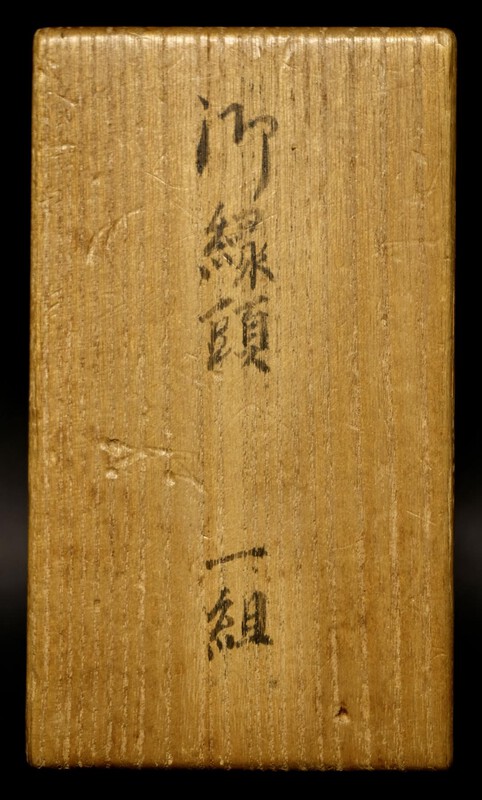 御縁頭 一組